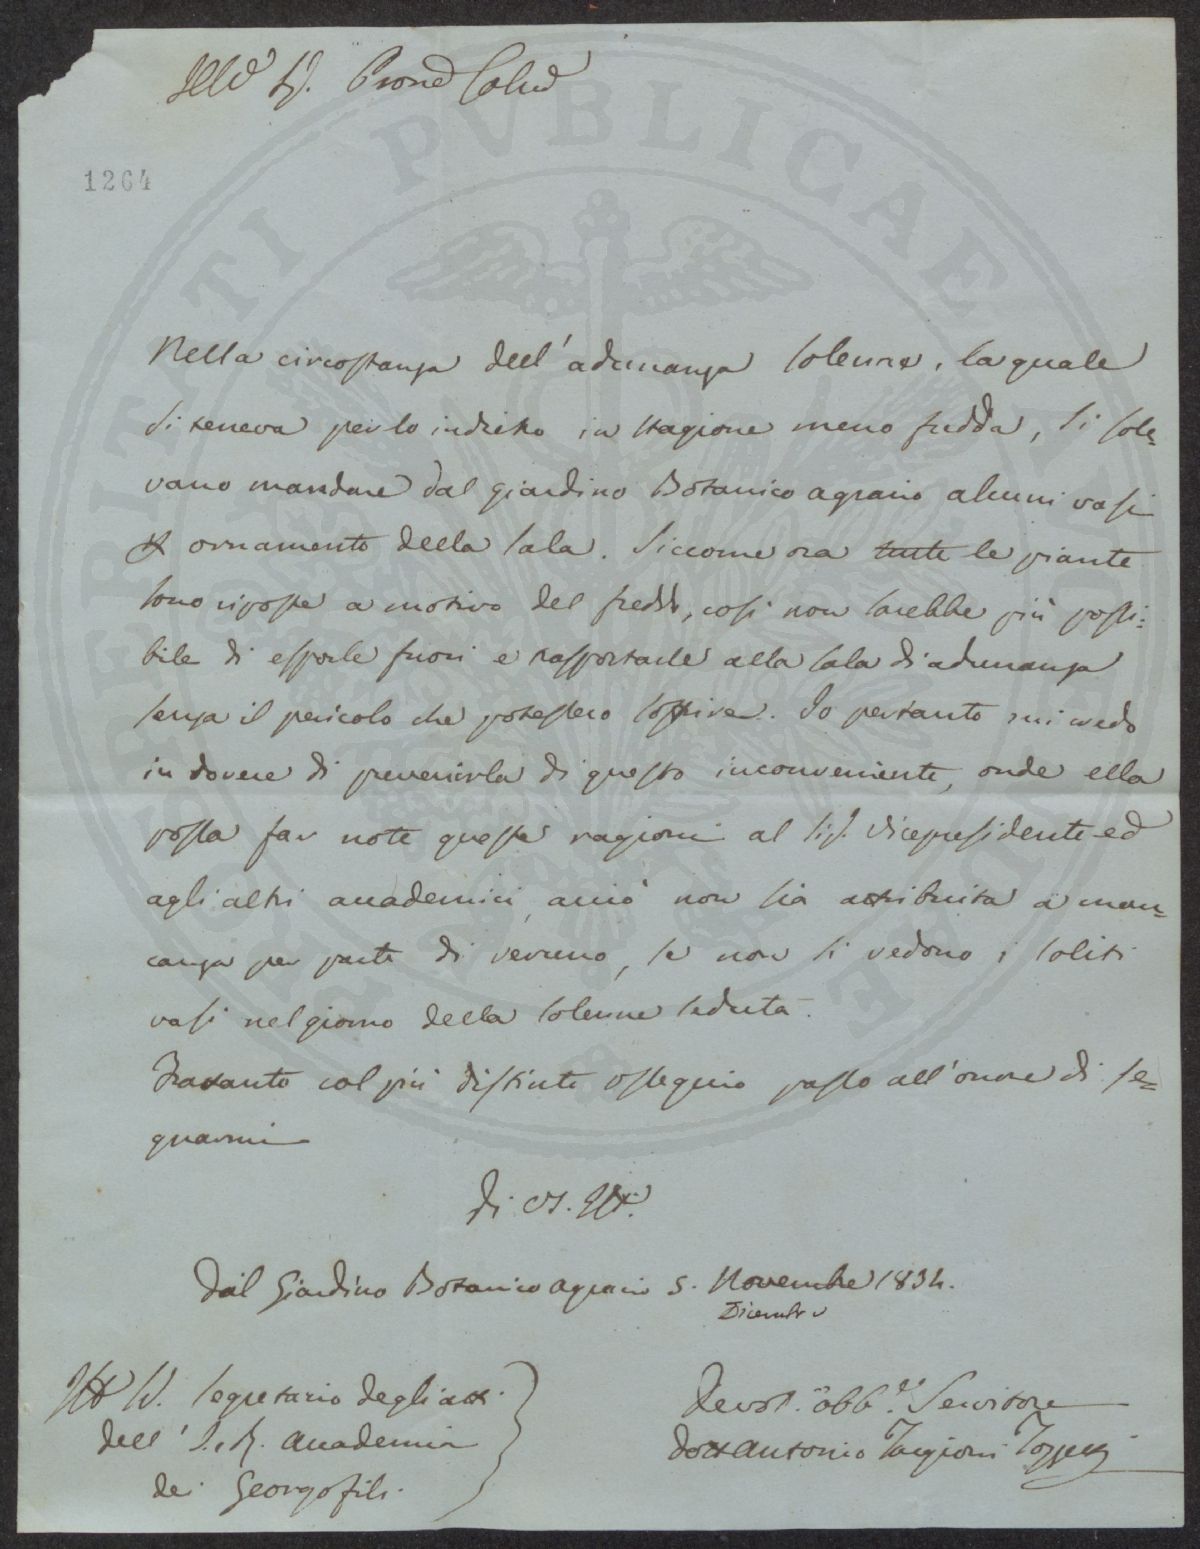 Illo Sig. Prone Colmo
1264
Nella circostanza dell'adunanza solenne, la quale
si teneva per lo indietro in stagione meno fredda, si sole=
vano mandare dal giardino Botanico agrario alcuni vasi
x ornamento della sala. Siccome ora tutte le piante
sono riposte a motivo del freddo, così non sarebbe più possi=
bile di esporle fuori e trasportarle alla sala di adunanza
senza il pericolo che potessero soffrire. Io pertanto mi credo
in dovere di prevenirla di questo inconveniente, onde ella
possa far note queste ragioni al Sig. Vicepresidente ed
agli altri accademici, acciò non sia attribuita a man=
canza per parte di veruno, se non si vedono i soliti
vasi nel giorno della solenne seduta.
Frattanto col più distinto ossequio passo all'onore di se=
gnarmi
Di VS. Ill.
Dal Giardino Botanico agrario 5. Novembre 1834.
Dicembre
Sig. Segretario degli atti
dell'I. e R. Accademia
dei Georgofili.
Devot. Obb. Servitore
Dott Antonio Targioni Tozzetti
PROSPERITATI PVBLICAE AVGENDAE